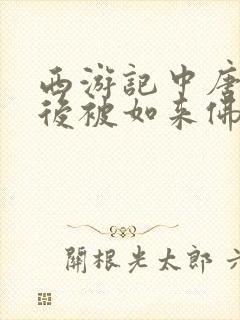 西游記中唐
後被如来佛
開根光太郎 六